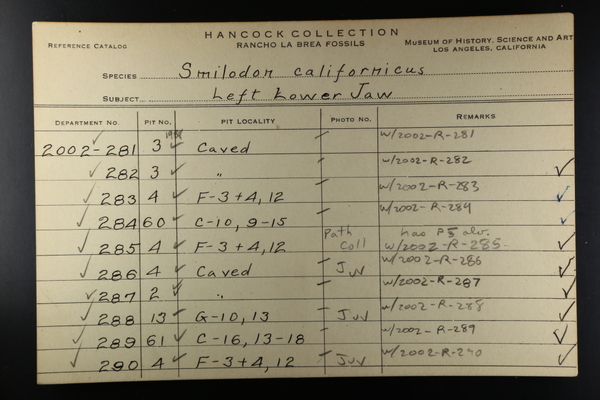 HANCOCK COLLECTION
REFERENCE CATALOG RANCHO LA BREA FOSSILS MUSEUM OF HISTORY, SCIENCE AND ART
LOS ANGELES, CALIFORNIA
SPECIES Smilodon californicus
SUBJECT Left Lower Jaw
DEPARTMENT NO. PIT NO. PIT LOCALITY PHOTO NO. REMARKS
2002-281 3 Caved w/2002-R-281
282 3 " w/2002-R-282
283 4 F-3+4, 12 w/2002-R-283
284 60 C-10, 9-15 w/2002-R-284
285 4 F-3+4, 12 Path Coll has P5 alv. w/2002-R-285
286 4 Caved Juv w/2002-R-286
287 2 " w/2002-R-287
288 13 G-10, 13 Juv w/2002-R-288
289 61 C-16, 13-18 w/2002-R-289
290 4 F-3+4, 12 Juv w/2002-R-290